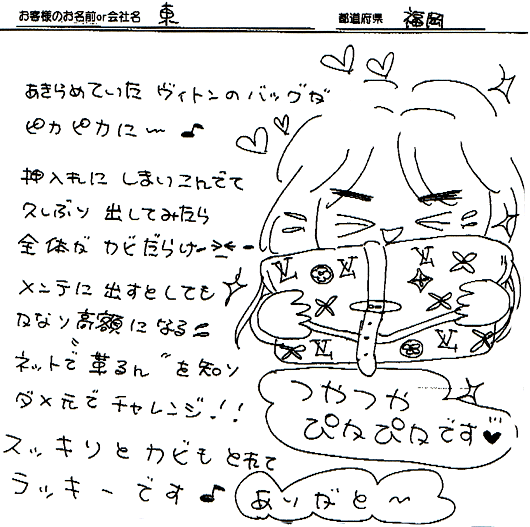 お客様のお名前or会社名 東 都道府県 福岡
あきらめていた ヴィトンのバッグが
ピカピカに〜♪
押入れに しまいこんでて
久しぶり 出してみたら
全体が カビだらけ
メンテに 出すとしても
かなり高額になる
ネットで 革るん〃を知り
ダメ元でチャレンジ!!
スッキリと カビもとれて
ラッキーです♪
つやつや
ぴかぴかです♥
ありがと〜